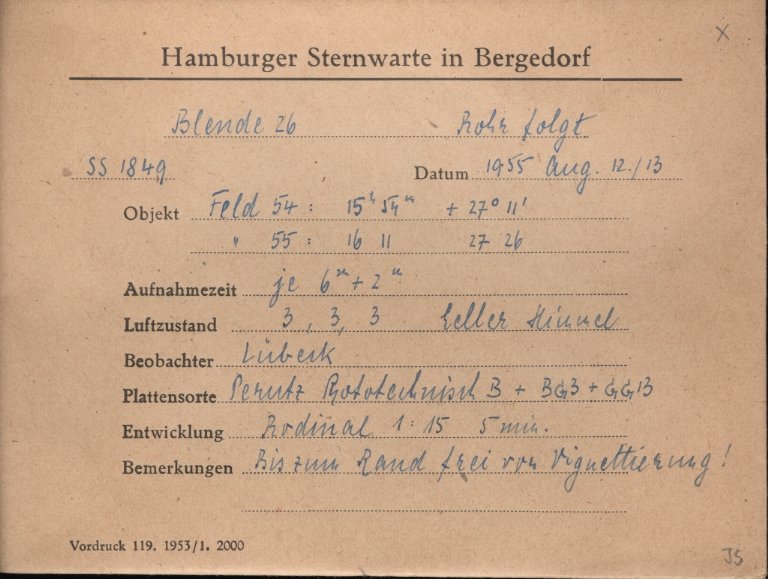 X
Hamburger Sternwarte in Bergedorf
Blende 26 Rohr folgt
SS 1849 Datum 1955 Aug. 12./13
Objekt Feld 54 : 15ʰ 54ᵐ + 27° 11'
" 55 : 16 11 27 26
Aufnahmezeit je 6ᵐ + 2ᵐ
Luftzustand 3, 3, 3 heller Himmel
Beobachter Lübeck
Plattensorte Perutz Phototechnisch B + BG3 + GG13
Entwicklung Rodinal 1 : 15 5 min.
Bemerkungen Bis zum Rand frei von Vignettierung !
Vordruck 119. 1953/1. 2000
JS